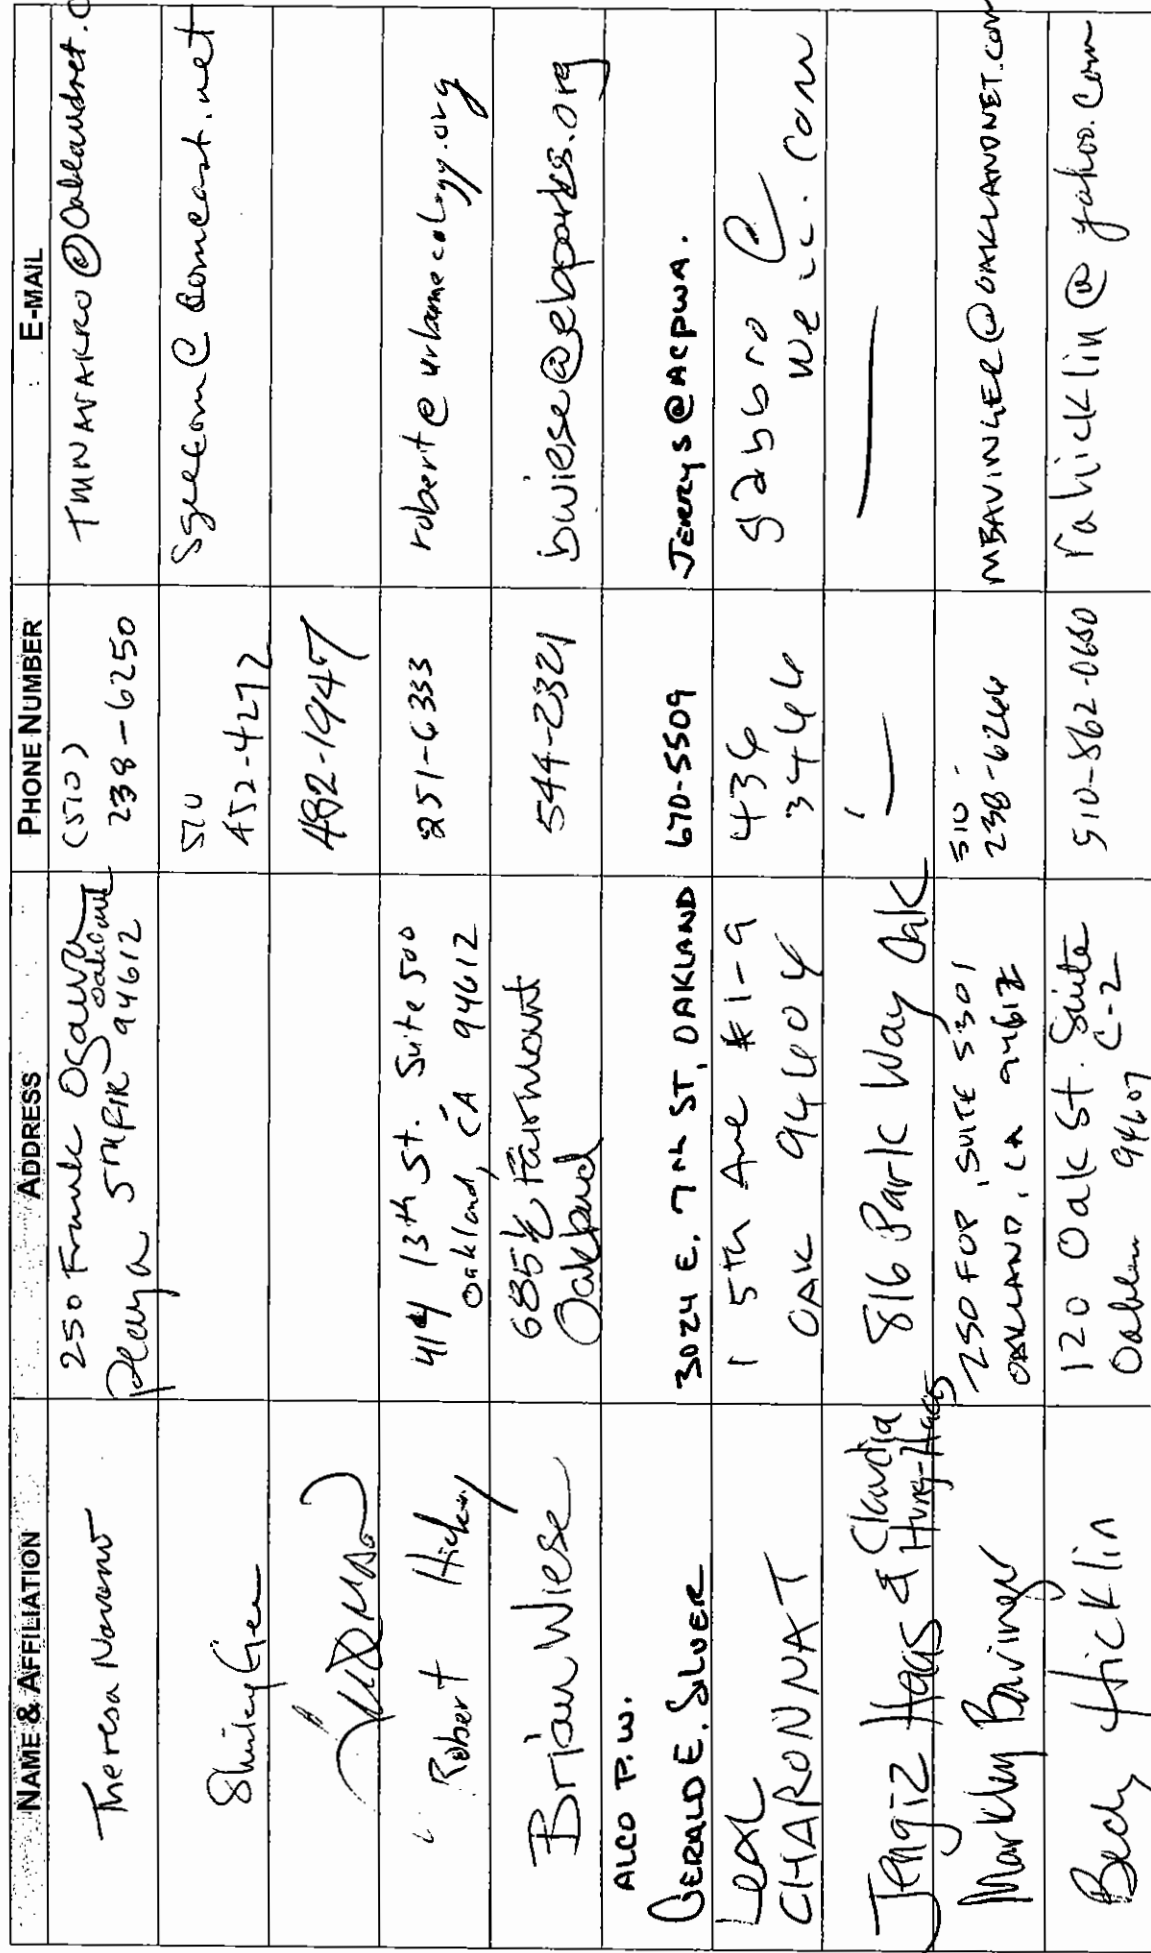 NAME & AFFILIATION ADDRESS PHONE NUMBER E-MAIL
Theresa Navarro 250 Frank Ogawa Plaza 5th Flr Oakland 94612 (510) 238-6250 TMNAVARRO@Oaklandnet.c
Shirley Gee 510 452-4272 Sgeecom@comcast.net
482-1947
Robert Hickey 414 13th St. Suite 500 Oakland, CA 94612 251-6333 robert@urbanecology.org
Brian Wiese 6835½ Fairmount Oakland 544-2321 bwiese@ebparks.org
ALCO P.W.
GERALD E. SILVER 3024 E. 7th ST, OAKLAND 670-5509 JERRYS@ACPWA.
Leal CHARONNAT 1 5th Ave #1-9 OAK 94604 436 3466 gabbro@ we-ic.com
Jengiz Haas & Claudia Hung-Haas 816 Park Way Oak — —
Markley Bavinger 250 FOP, SUITE 5301 OAKLAND, CA 94612 510- 238-6266 MBAVINGER@OAKLANDNET.COM
Becky Hicklin 120 Oak St. Suite C-2 94607 510-862-0660 rahicklin@yahoo.com